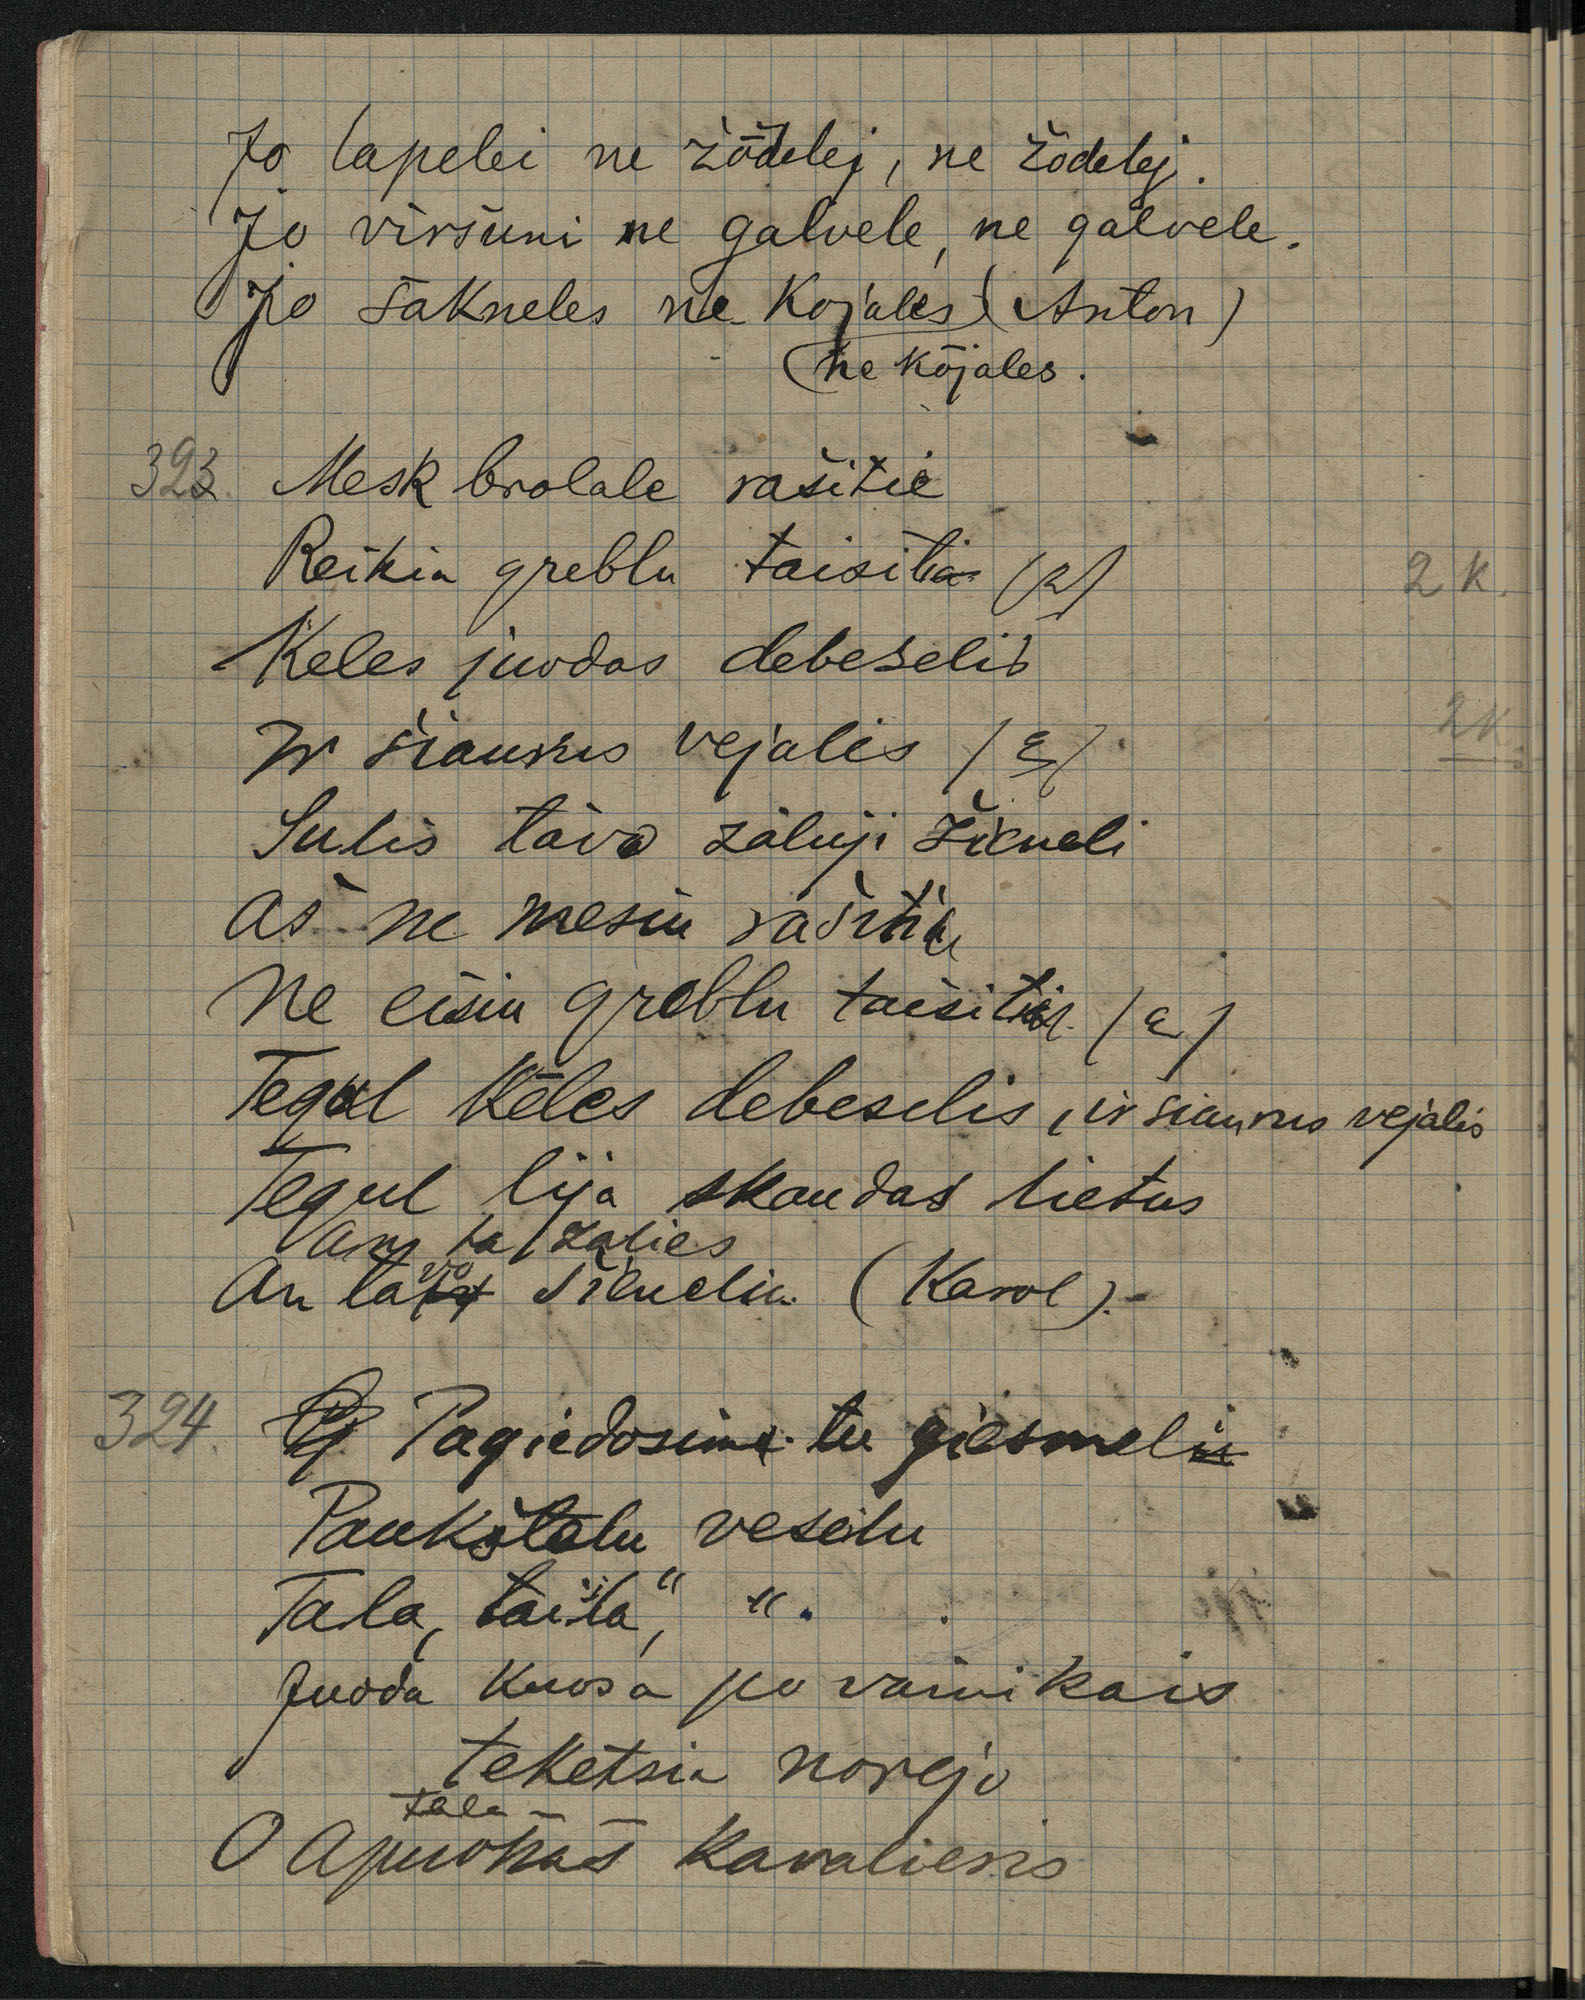 Jo lapelei ne žõdelej, ne žodelej.
Jo viršuni ne galvele, ne galvele.
Jo šakneles ne kojales (Anton)
(ne kõjales.
323. Mesk brolale rašitie
Reikia greblu taisitia (2) 2 K.
Keles juodas debeselis
Ir šiaurus vejalis (2) 2K.
Sulis tavo žaluji šieneli
Aš ne mesiu rašitia
Ne eisiu greblu taisitia (2)
Tegul kēles debeselis, ir šiaurus vejalis
Tegul lija skaudas lietus
ta žalies
An tavo šienelia (Karol).
324. Pagiedosime tu giesmelu
Paukštelu veselu
Tala, taila, " ".
Juoda kuosa po vainikais
teketsia norejo
tala
O Apuokas kavalieris